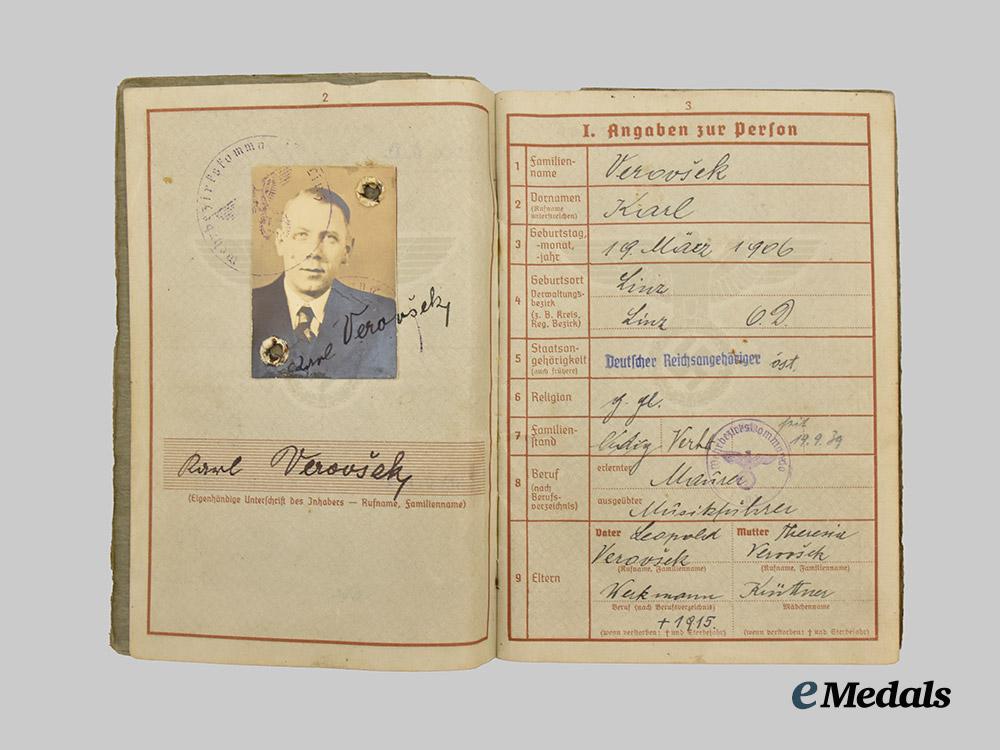 2
Karl Verovšek
Karl Verovšek
(Eigenhändige Unterschrift des Inhabers — Rufname, Familienname)
3
I. Angaben zur Person
1 Familien-
name
Verovšek
2 Vornamen
(Rufname
unterstreichen)
Karl
3 Geburtstag,
-monat,
-jahr
19. März 1906
4 Geburtsort
Verwaltungs-
bezirk
(z. B. Kreis,
Reg. Bezirk)
Linz
Linz O.D.
5 Staatsan-
gehörigkeit
(auch frühere)
Deutscher Reichsangehöriger öst.
6 Religion
g. gl.
7 Familien-
stand
ledig Verh. seit
19.9.39
Wehrbezirkskommando
8 Beruf
(nach
Berufs-
verzeichnis)
erlernter
Maurer
ausgeübter
Musikführer
9 Eltern
Vater Leopold
Verovšek
(Rufname, Familienname)
Werkmann
Beruf (nach Berufsverzeichnis)
+ 1915.
(wenn verstorben: † und Sterbejahr)
Mutter Theresia
Verovšek
(Rufname, Familienname)
Knüttner
Mädchenname
(wenn verstorben: † und Sterbejahr)
eMedals